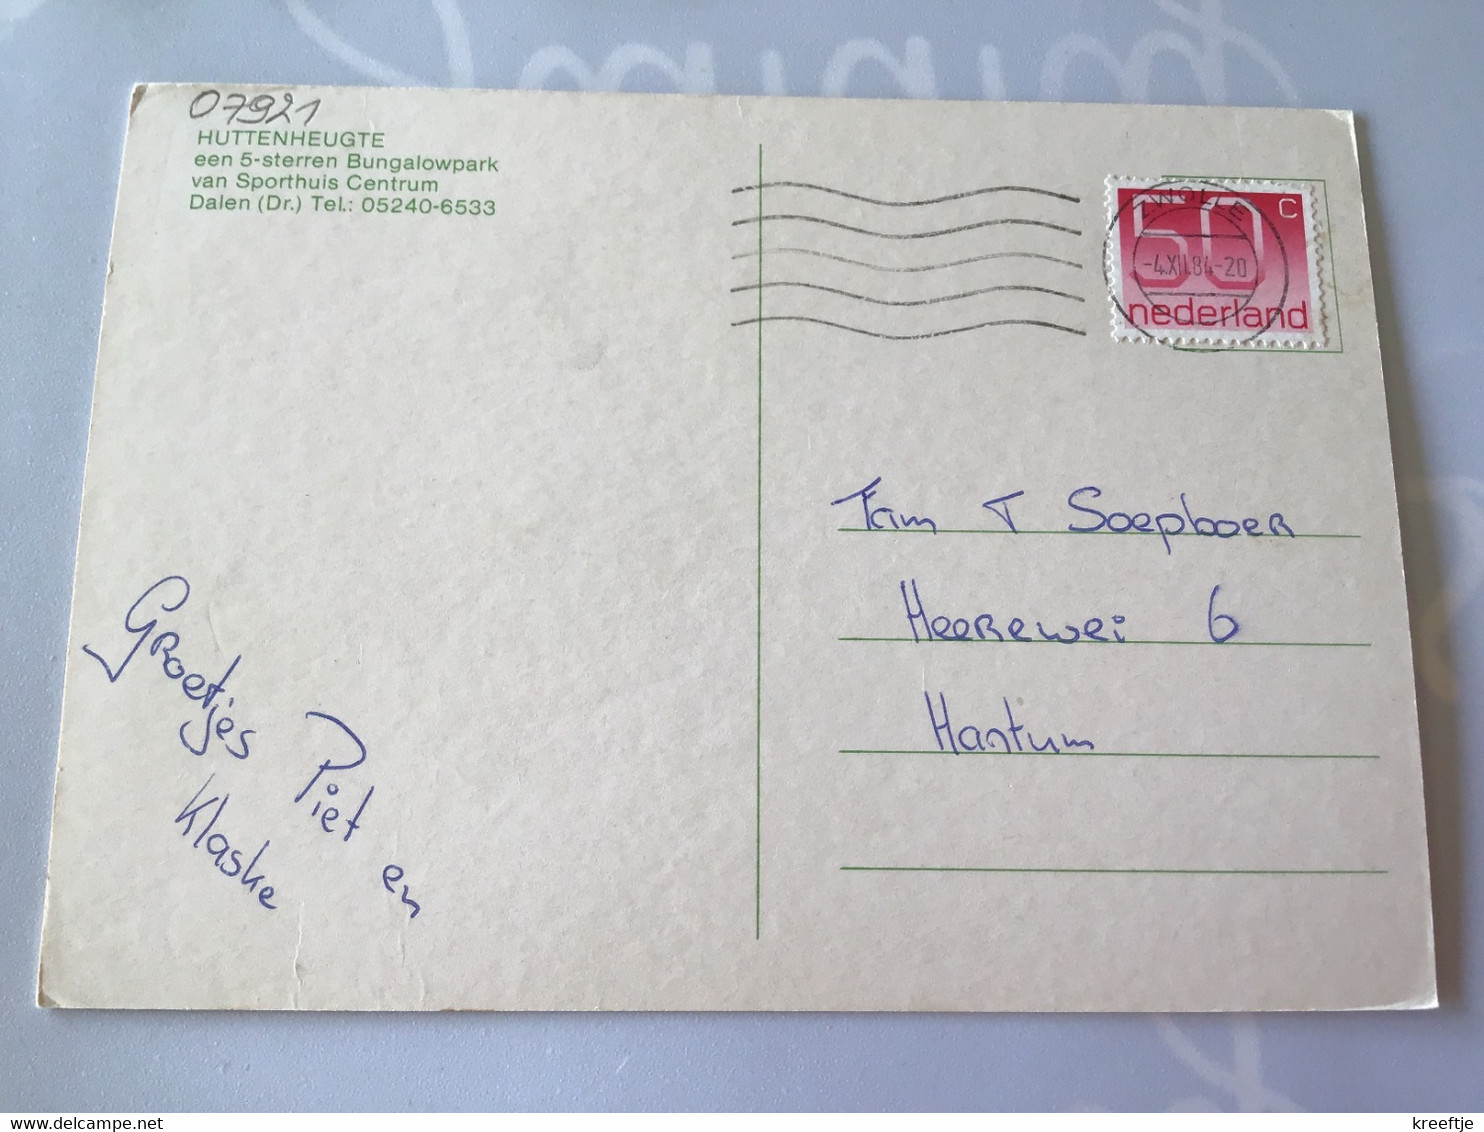 07921
HUTTENHEUGTE
een 5-sterren Bungalowpark
van Sporthuis Centrum
Dalen (Dr.) Tel.: 05240-6533
ZWOLLE
-4.XII.84-20
50 c
nederland
Fam T Soepboer
Heerewei 6
Hantum
Groetjes Piet en
Klaske
delcampe.net
kreeftje